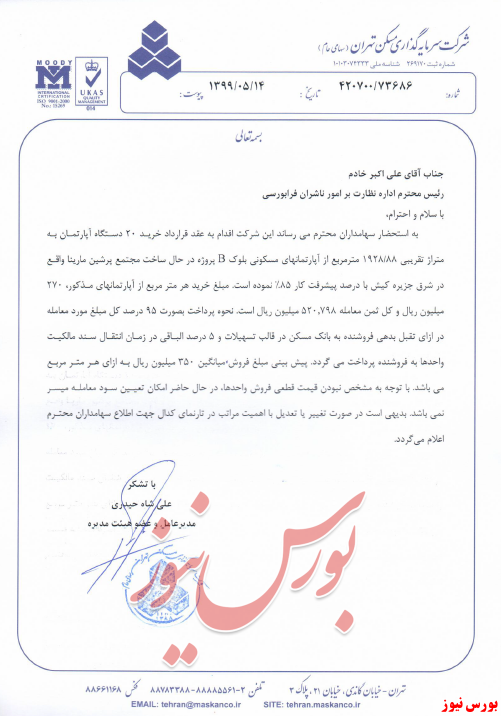 شرکت سرمایه گذاری مسکن تهران (سهامی عام)
شماره ثبت ۲۶۹۱۷۰ شناسه ملی ۱۰۱۰۳۰۷۴۳۳۳
MOODY
INTERNATIONAL
CERTIFICATION
ISO 9001:2000
UKAS
QUALITY
MANAGEMENT
014
شماره: ۴۲۰۷۰۰/۷۳۶۸۶ تاریخ: ۱۳۹۹/۰۵/۱۴ پیوست:
بسمه تعالی
جناب آقای علی اکبر خادم
رئیس محترم اداره نظارت بر امور ناشران فرابورسی
با سلام و احترام،
به استحضار سهامداران محترم می رساند این شرکت اقدام به عقد قرارداد خرید ۲۰ دستگاه آپارتمان به
متراژ تقریبی ۱۹۲۸/۸۸ مترمربع از آپارتمانهای مسکونی بلوک B پروژه در حال ساخت مجتمع پرشین مارینا واقع
در شرق جزیره کیش با درصد پیشرفت کار ۸۵٪ نموده است. مبلغ خرید هر متر مربع از آپارتمانهای مذکور، ۲۷۰
میلیون ریال و کل ثمن معامله ۵۲۰,۷۹۸ میلیون ریال است. نحوه پرداخت بصورت ۹۵ درصد کل مبلغ مورد معامله
در ازای تقبل بدهی فروشنده به بانک مسکن در قالب تسهیلات و ۵ درصد الباقی در زمان انتقال سند مالکیت
واحدها به فروشنده پرداخت می گردد. پیش بینی مبلغ فروش میانگین ۳۵۰ میلیون ریال به ازای هر متر مربع
می باشد. با توجه به مشخص نبودن قیمت قطعی فروش واحدها، در حال حاضر امکان تعیین سود معامله میسر
نمی باشد. بدیهی است در صورت تغییر یا تعدیل با اهمیت مراتب در تارنمای کدال جهت اطلاع سهامداران محترم
اعلام می گردد.
با تشکر
علی شاه حیدری
مدیرعامل و عضو هیئت مدیره
بورس نیوز
تهران - خیابان گاندی، خیابان ۲۱، پلاک ۳ تلفن ۲-۸۸۸۸۵۵۶۱-۸۸۷۸۳۳۸۸ فکس ۸۸۶۶۱۱۶۸
EMAIL: tehran@maskanco.ir SITE: tehran.maskanco.ir
بورس نیوز